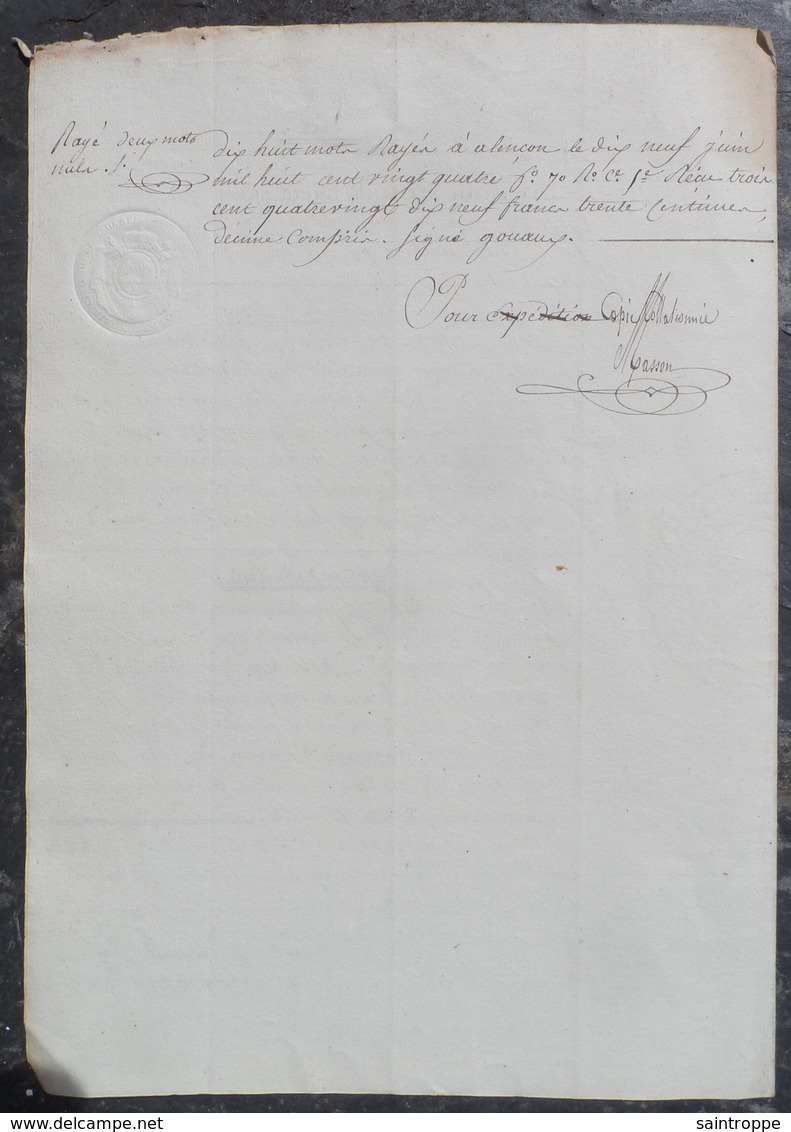 Rayé deux mots
nuls ./.
dix huit mots Rayés à alencon le dix neuf juin
mil huit cent vingt quatre fo. 70 Ro. Ce. 1e. Récu trois
cent quatrevingt dix neuf francs trente Centimes,
décime Compris. signé gouaux.
Pour expédition Copie Collationnée
Masson
www.delcampe.net
saintroppe